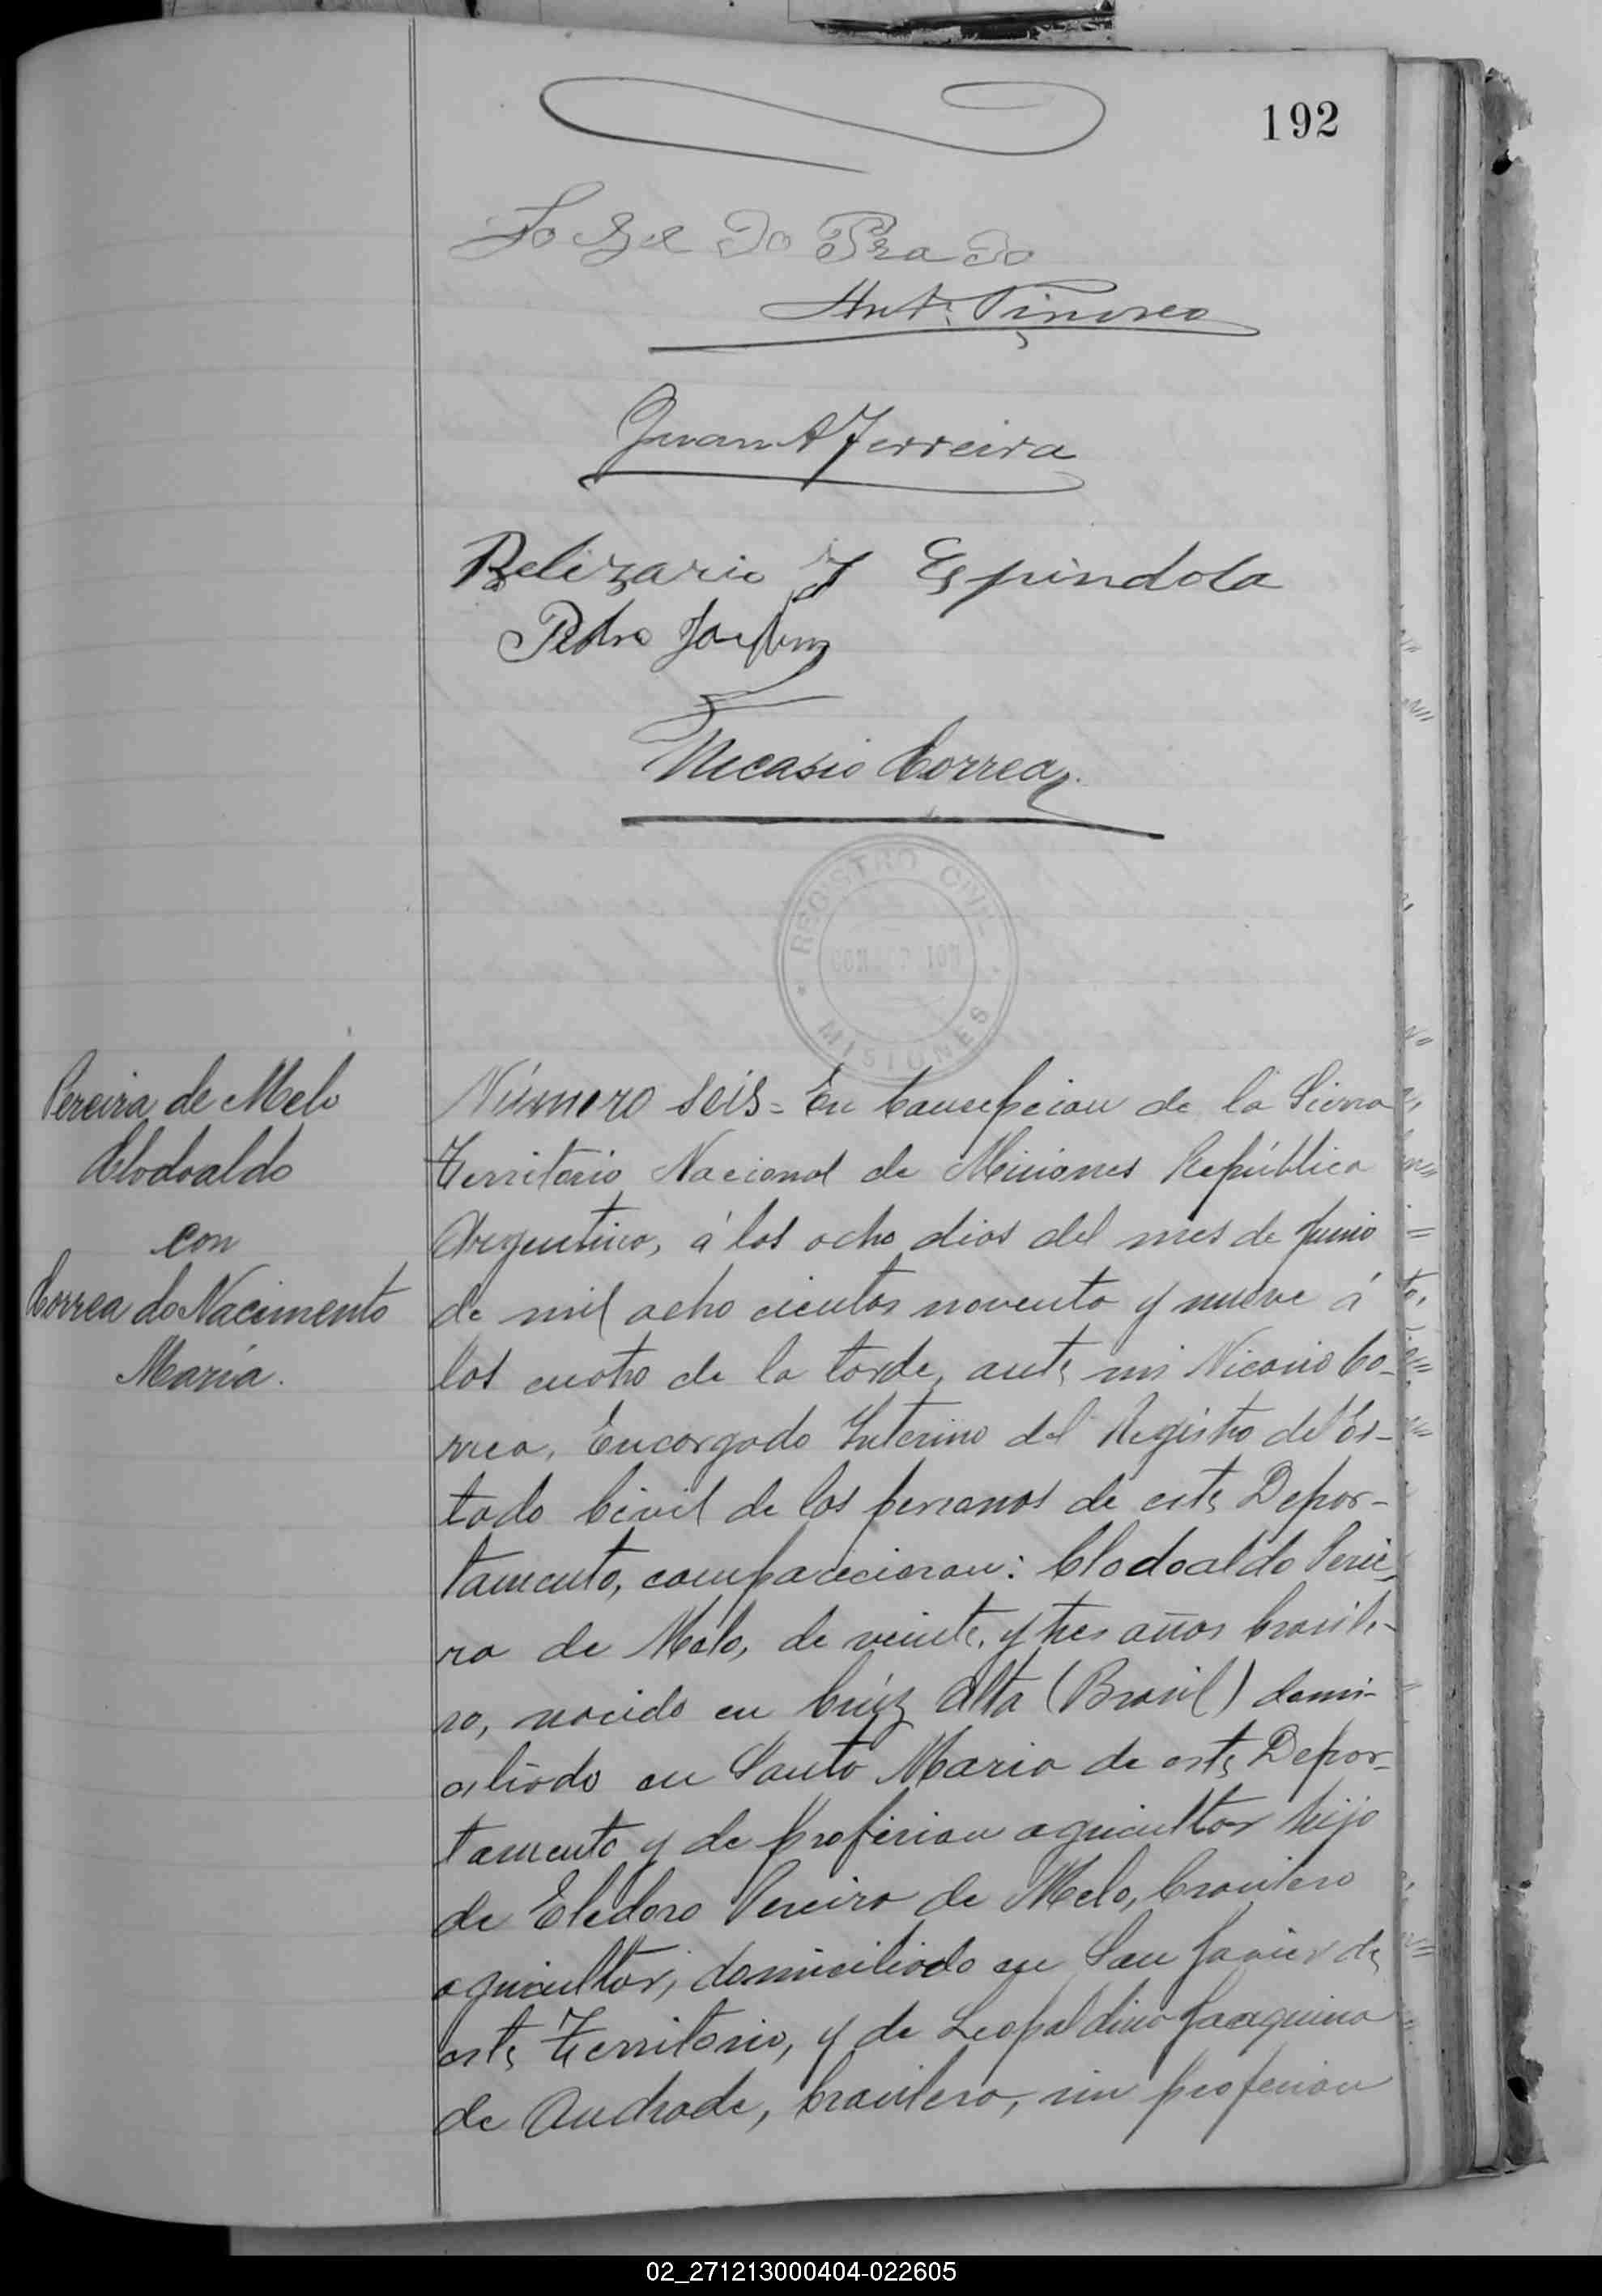 192
Jorge do Prado
Juan A Ferreira
Belizario J Espindola
Pedro
Nicasio Correa
REGISTRO CIVIL
MISIONES
Pereira de Melo
Clodoaldo
con
Correa do Nacimento
María.
Número seis = En Concepcion de la Sierra
Territorio Nacional de Misiones República
Argentina, á los ocho dias del mes de Junio
de mil ocho cientos noventa y nueve á
las cuatro de la tarde, ante mi Nicasio Co-
rrea, Encargado Interino del Registro del Es-
tado Civil de las personas de este Depar-
tamento, comparecieron: Clodoaldo Perei-
ra de Melo, de veinte y tres años brasile-
ro, nacido en Crúz Alta (Brasil) domi-
ciliado en Santa Maria de este Depar-
tamento y de profesion agricultor hijo
de Eledoro Pereira de Melo, brasilero
agricultor, domiciliado en San Javier de
este Territorio, y de Leopaldina Joaquina
de Andrade, brasilera, sin profesion
02_271213000404-022605